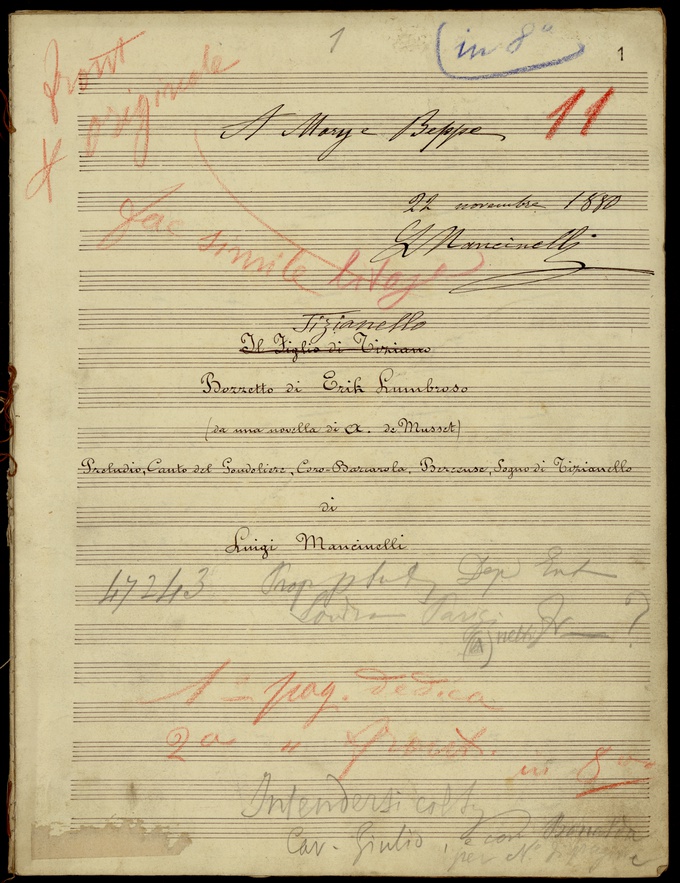 1
in 8º
1
front
originale
11
A Mary e Beppe
22 novembre 1880
LMancinelli
Fac simile
Tizianello
Il Figlio di Tiziano
Bozzetto di Erik Lumbroso
(da una novella di A. de Musset)
Preludio, Canto del Gondoliere, Coro-Barcarola, Berceuse, Sogno di Tizianello
di
Luigi Mancinelli
47243
Parigi
?
1ª pag. dedica
2a " front.
in 8º
Intendersi
Cav. Giulio, e con
per